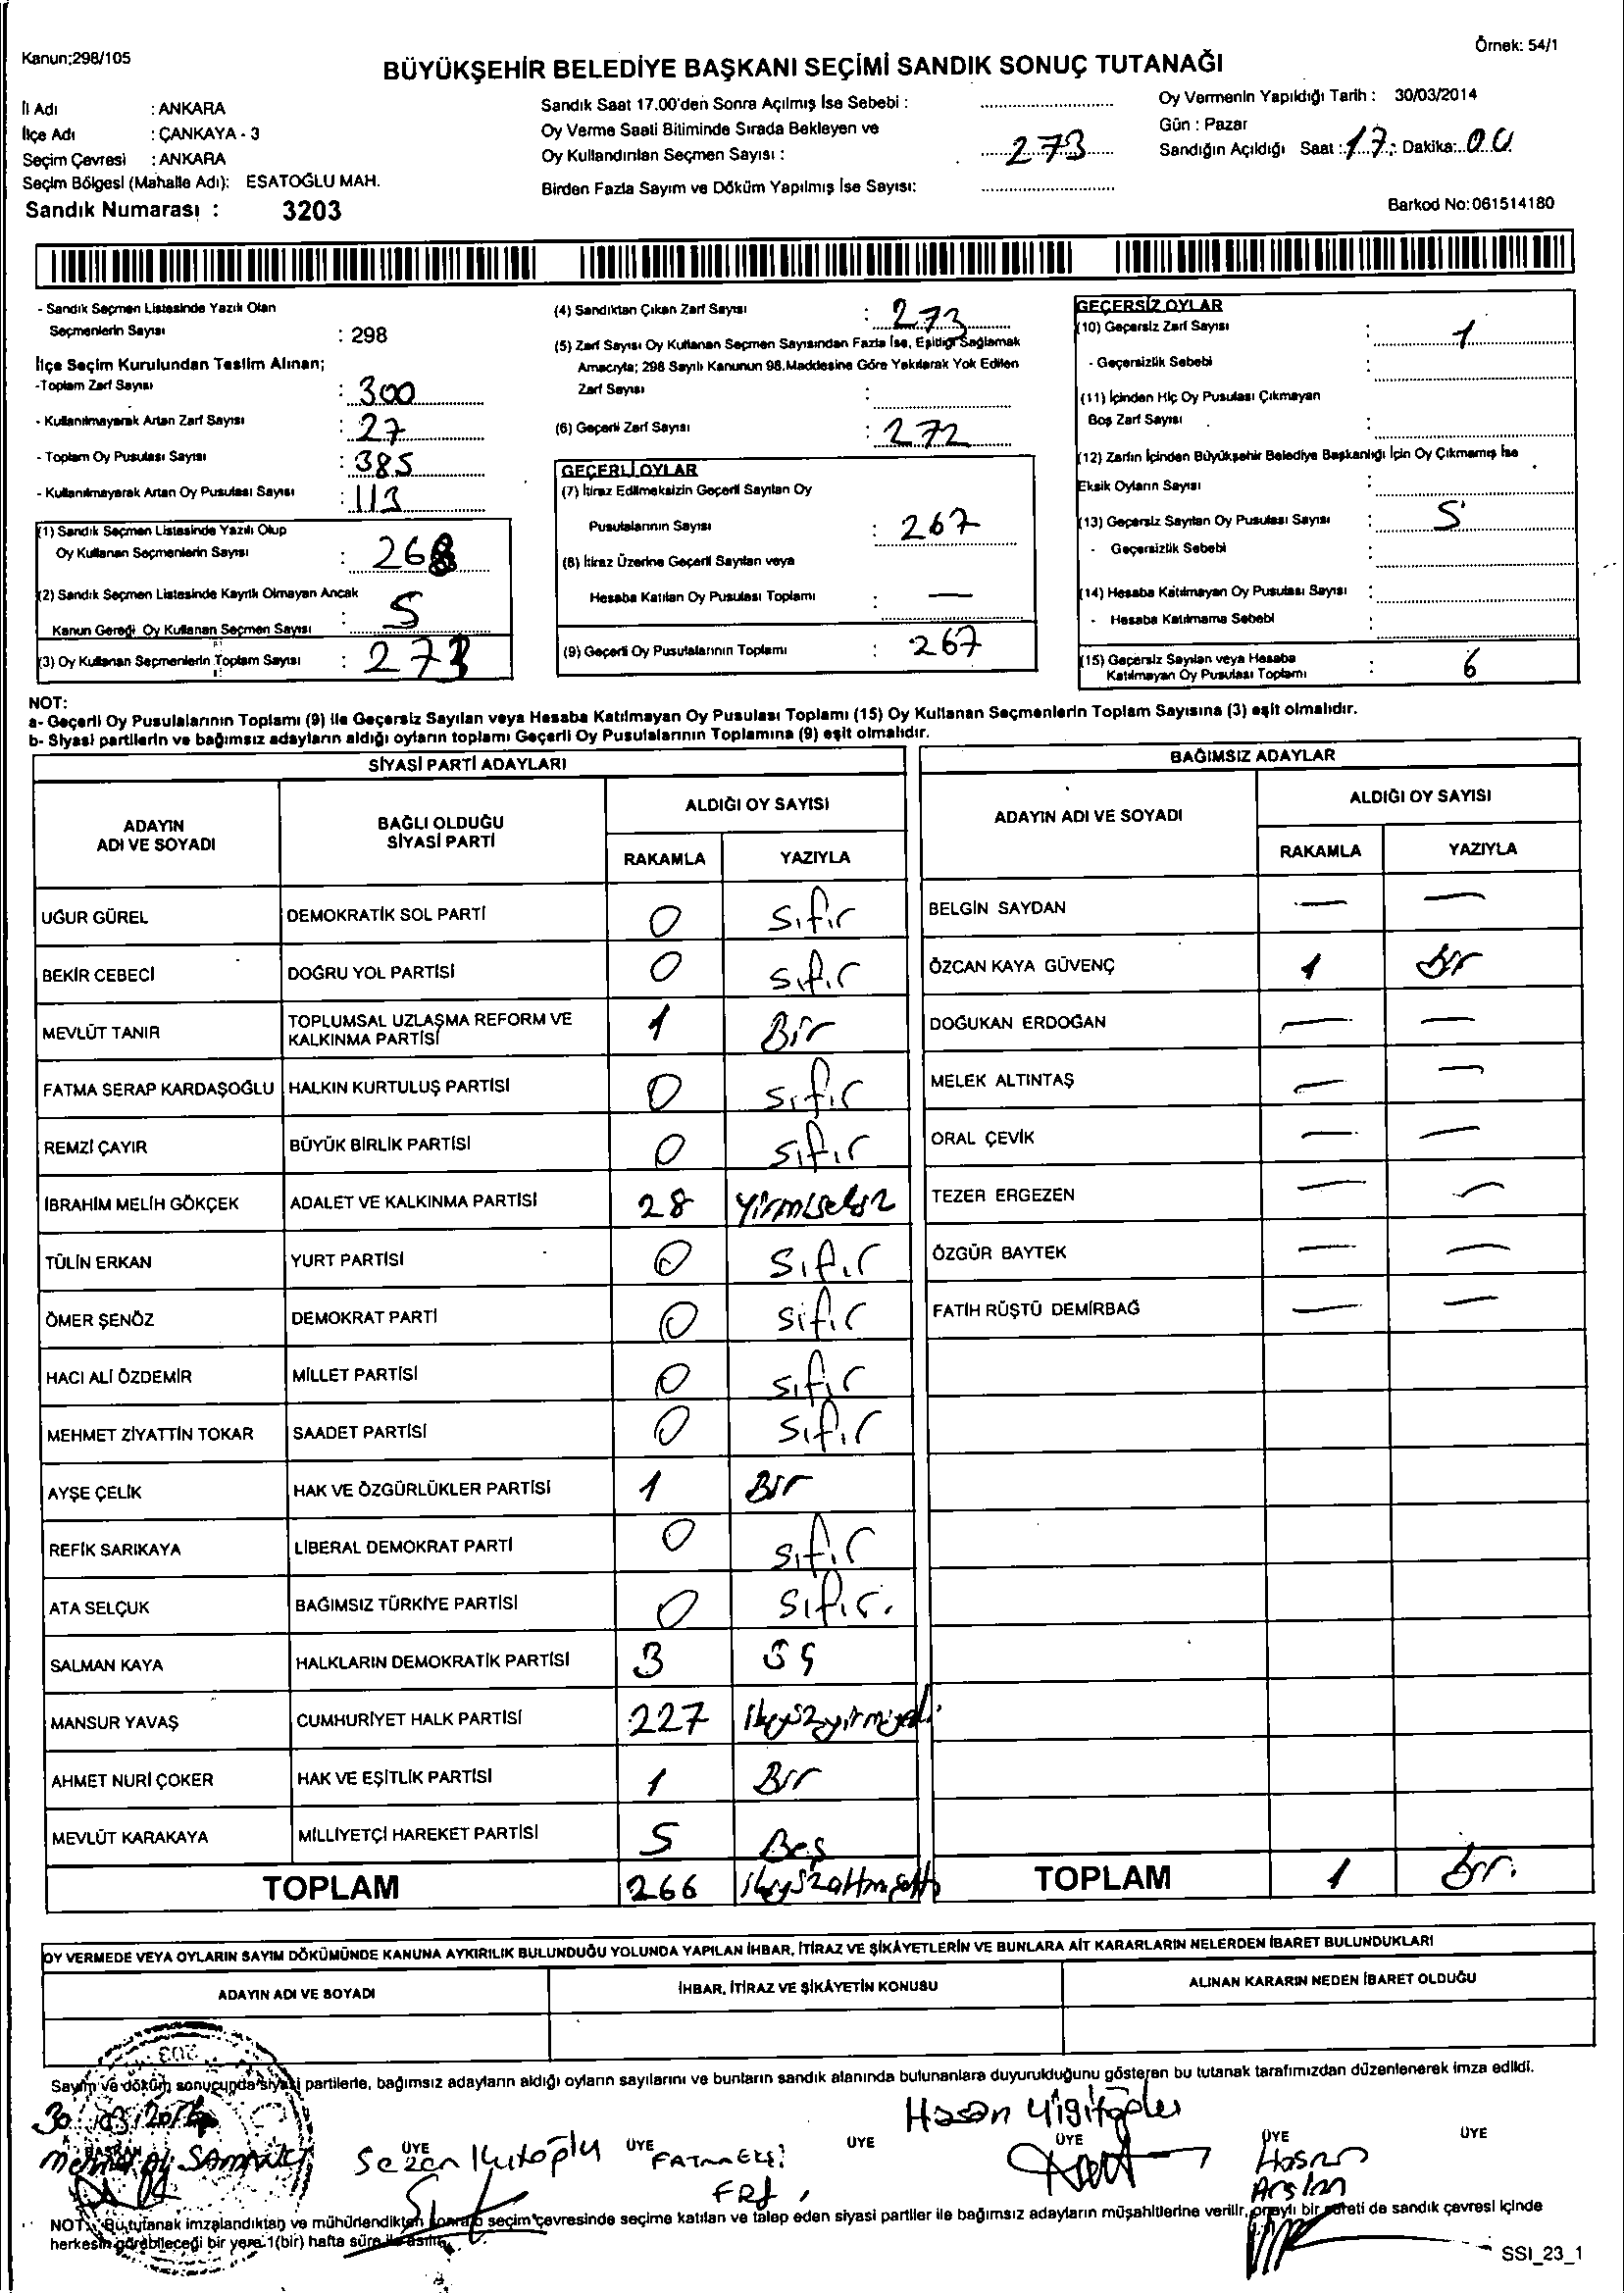 Kanun;298/105
Örnek: 54/1
BÜYÜKŞEHİR BELEDİYE BAŞKANI SEÇİMİ SANDIK SONUÇ TUTANAĞI
İl Adı : ANKARA
İlçe Adı : ÇANKAYA - 3
Seçim Çevresi : ANKARA
Seçim Bölgesi (Mahalle Adı): ESATOĞLU MAH.
Sandık Numarası : 3203
Sandık Saat 17.00'den Sonra Açılmış İse Sebebi :
Oy Verme Saati Bitiminde Sırada Bekleyen ve
Oy Kullandırılan Seçmen Sayısı : 273
Birden Fazla Sayım ve Döküm Yapılmış İse Sayısı:
Oy Vermenin Yapıldığı Tarih : 30/03/2014
Gün : Pazar
Sandığın Açıldığı Saat : 17 : Dakika: 00
Barkod No:061514180
- Sandık Seçmen Listesinde Yazılı Olan
Seçmenlerin Sayısı : 298
İlçe Seçim Kurulundan Teslim Alınan;
-Toplam Zarf Sayısı : 300
- Kullanılmayarak Artan Zarf Sayısı : 27
- Toplam Oy Pusulası Sayısı : 385
- Kullanılmayarak Artan Oy Pusulası Sayısı : 113
(1) Sandık Seçmen Listesinde Yazılı Olup
Oy Kullanan Seçmenlerin Sayısı : 268
(2) Sandık Seçmen Listesinde Kayıtlı Olmayan Ancak
Kanun Gereği Oy Kullanan Seçmen Sayısı : 5
(3) Oy Kullanan Seçmenlerin Toplam Sayısı : 273
(4) Sandıktan Çıkan Zarf Sayısı : 273
(5) Zarf Sayısı Oy Kullanan Seçmen Sayısından Fazla İse, Eşitliği Sağlamak
Amacıyla; 298 Sayılı Kanunun 98.Maddesine Göre Yakılarak Yok Edilen
Zarf Sayısı :
(6) Geçerli Zarf Sayısı : 272
GEÇERLİ OYLAR
(7) İtiraz Edilmeksizin Geçerli Sayılan Oy
Pusulalarının Sayısı : 267
(8) İtiraz Üzerine Geçerli Sayılan veya
Hesaba Katılan Oy Pusulası Toplamı : —
(9) Geçerli Oy Pusulalarının Toplamı : 267
GEÇERSİZ OYLAR
(10) Geçersiz Zarf Sayısı : 1
- Geçersizlik Sebebi :
(11) İçinden Hiç Oy Pusulası Çıkmayan
Boş Zarf Sayısı :
(12) Zarfın İçinden Büyükşehir Belediye Başkanlığı İçin Oy Çıkmamış İse
Eksik Oyların Sayısı :
(13) Geçersiz Sayılan Oy Pusulası Sayısı : 5
- Geçersizlik Sebebi :
(14) Hesaba Katılmayan Oy Pusulası Sayısı :
- Hesaba Katılmama Sebebi :
(15) Geçersiz Sayılan veya Hesaba
Katılmayan Oy Pusulası Toplamı : 6
NOT:
a- Geçerli Oy Pusulalarının Toplamı (9) ile Geçersiz Sayılan veya Hesaba Katılmayan Oy Pusulası Toplamı (15) Oy Kullanan Seçmenlerin Toplam Sayısına (3) eşit olmalıdır.
b- Siyasi partilerin ve bağımsız adayların aldığı oyların toplamı Geçerli Oy Pusulalarının Toplamına (9) eşit olmalıdır.
SİYASİ PARTİ ADAYLARI
ADAYIN ADI VE SOYADI
BAĞLI OLDUĞU SİYASİ PARTİ
ALDIĞI OY SAYISI
RAKAMLA YAZIYLA
UĞUR GÜREL DEMOKRATİK SOL PARTİ 0 Sıfır
BEKİR CEBECİ DOĞRU YOL PARTİSİ 0 Sıfır
MEVLÜT TANIR TOPLUMSAL UZLAŞMA REFORM VE KALKINMA PARTİSİ 1 Bir
FATMA SERAP KARDAŞOĞLU HALKIN KURTULUŞ PARTİSİ 0 Sıfır
REMZİ ÇAYIR BÜYÜK BİRLİK PARTİSİ 0 Sıfır
İBRAHİM MELİH GÖKÇEK ADALET VE KALKINMA PARTİSİ 28 Yirmisekiz
TÜLİN ERKAN YURT PARTİSİ 0 Sıfır
ÖMER ŞENÖZ DEMOKRAT PARTİ 0 Sıfır
HACI ALİ ÖZDEMİR MİLLET PARTİSİ 0 Sıfır
MEHMET ZİYATTİN TOKAR SAADET PARTİSİ 0 Sıfır
AYŞE ÇELİK HAK VE ÖZGÜRLÜKLER PARTİSİ 1 Bir
REFİK SARIKAYA LİBERAL DEMOKRAT PARTİ 0 Sıfır
ATA SELÇUK BAĞIMSIZ TÜRKİYE PARTİSİ 0 Sıfır.
SALMAN KAYA HALKLARIN DEMOKRATİK PARTİSİ 3 Üç
MANSUR YAVAŞ CUMHURİYET HALK PARTİSİ 227 ikiyüzyirmiyedi
AHMET NURİ ÇOKER HAK VE EŞİTLİK PARTİSİ 1 Bir
MEVLÜT KARAKAYA MİLLİYETÇİ HAREKET PARTİSİ 5 Beş
TOPLAM 266 ikiyüzaltmışaltı
BAĞIMSIZ ADAYLAR
ADAYIN ADI VE SOYADI
ALDIĞI OY SAYISI
RAKAMLA YAZIYLA
BELGİN SAYDAN — —
ÖZCAN KAYA GÜVENÇ 1 Bir
DOĞUKAN ERDOĞAN — —
MELEK ALTINTAŞ — —
ORAL ÇEVİK — —
TEZER ERGEZEN — —
ÖZGÜR BAYTEK — —
FATİH RÜŞTÜ DEMİRBAĞ — —
TOPLAM 1 Bir.
OY VERMEDE VEYA OYLARIN SAYIM DÖKÜMÜNDE KANUNA AYKIRILIK BULUNDUĞU YOLUNDA YAPILAN İHBAR, İTİRAZ VE ŞİKÂYETLERİN VE BUNLARA AİT KARARLARIN NELERDEN İBARET BULUNDUKLARI
ADAYIN ADI VE SOYADI İHBAR, İTİRAZ VE ŞİKÂYETİN KONUSU ALINAN KARARIN NEDEN İBARET OLDUĞU
Sayım ve döküm sonucunda siyasi partilerle, bağımsız adayların aldığı oyların sayılarını ve bunların sandık alanında bulunanlara duyurulduğunu gösteren bu tutanak tarafımızdan düzenlenerek imza edildi.
30/03/2014
BAŞKAN ÜYE ÜYE ÜYE ÜYE ÜYE ÜYE
Sezen Kutoğlu FATMA EKŞİ Hasan Yiğitoğlu Hasan Arslan
NOT: Bu tutanak imzalandıktan ve mühürlendikten sonra seçim çevresinde seçime katılan ve talep eden siyasi partiler ile bağımsız adayların müşahitlerine verilir, onaylı bir sureti de sandık çevresi içinde
herkesin görebileceği bir yere 1(bir) hafta süre ile asılır.
SSI_23_1